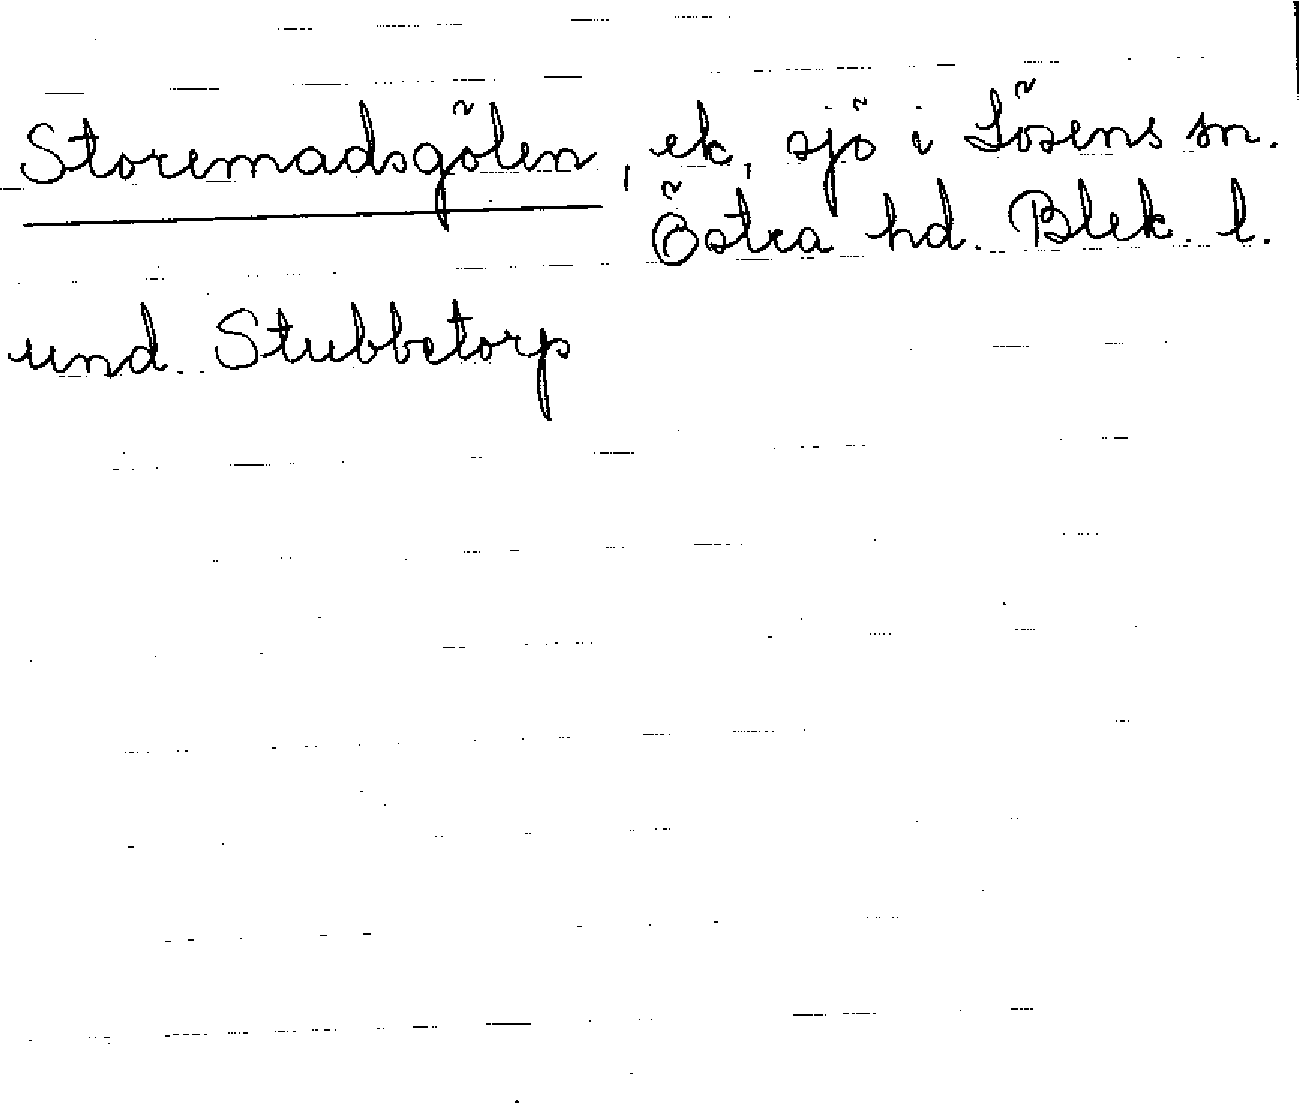 Storemadsgölen, ek, sjö i Lösens sn.
Östra hd. Blek. l.
und. Stubbetorp